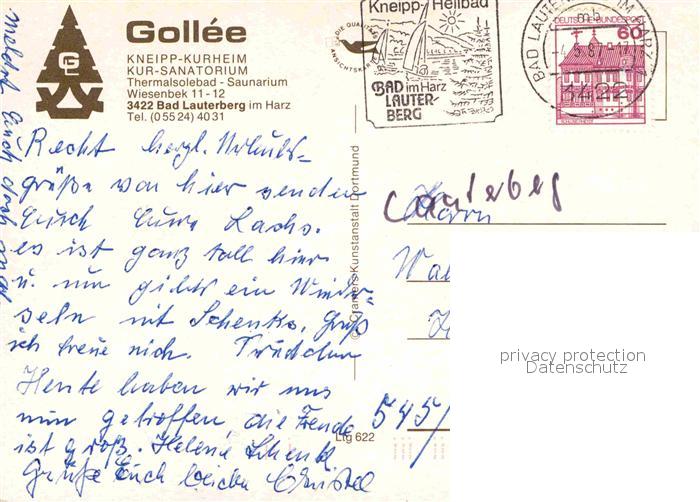 Gollée
KNEIPP-KURHEIM
KUR-SANATORIUM
Thermalsolebad - Saunarium
Wiesenbek 11 - 12
3422 Bad Lauterberg im Harz
Tel. (0 55 24) 40 31
GL
DIE QUALITÄTS
ANSICHTSKARTE
Kneipp-Heilbad
BAD im Harz
LAUTER-
BERG
BAD LAUTERBERG IM HARZ
3422
DEUTSCHE BUNDESPOST
60
Recht herzl. Urlaubs-
grüße von hier senden
Euch Eure
es ist ganz toll hier
u. nun gibts ein Wieder-
sehn mit Schenks. Gruß
ich freue mich.
Heute haben wir uns
nun getroffen, die Freude
ist groß. Helene Schenk
Grüße Euch beide Christel
© Cramers Kunstanstalt Dortmund
Ltg 622
Lauterberg
Herrn
545/
privacy protection
Datenschutz